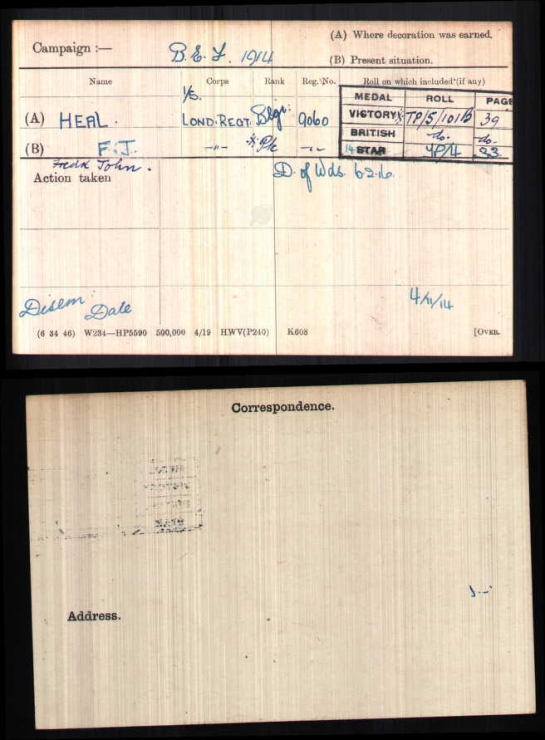 (A) Where decoration was earned.
Campaign :— B.E.F. 1914
(B) Present situation.
Name Corps Rank Reg. No. Roll on which included (if any)
MEDAL ROLL PAGE
1/5.
(A) HEAL. LOND. REGT. 9060
VICTORY TP/5/101B 39
BRITISH -do- -do-
(B) F. J. —„—
14 STAR 33
Fredk John.
Action taken D. of Wds.
4/11/14
Disem Date
(6 34 46) W234—HP5590 500,000 4/19 HWV(P240) K608 [OVER.
Correspondence.
Address.